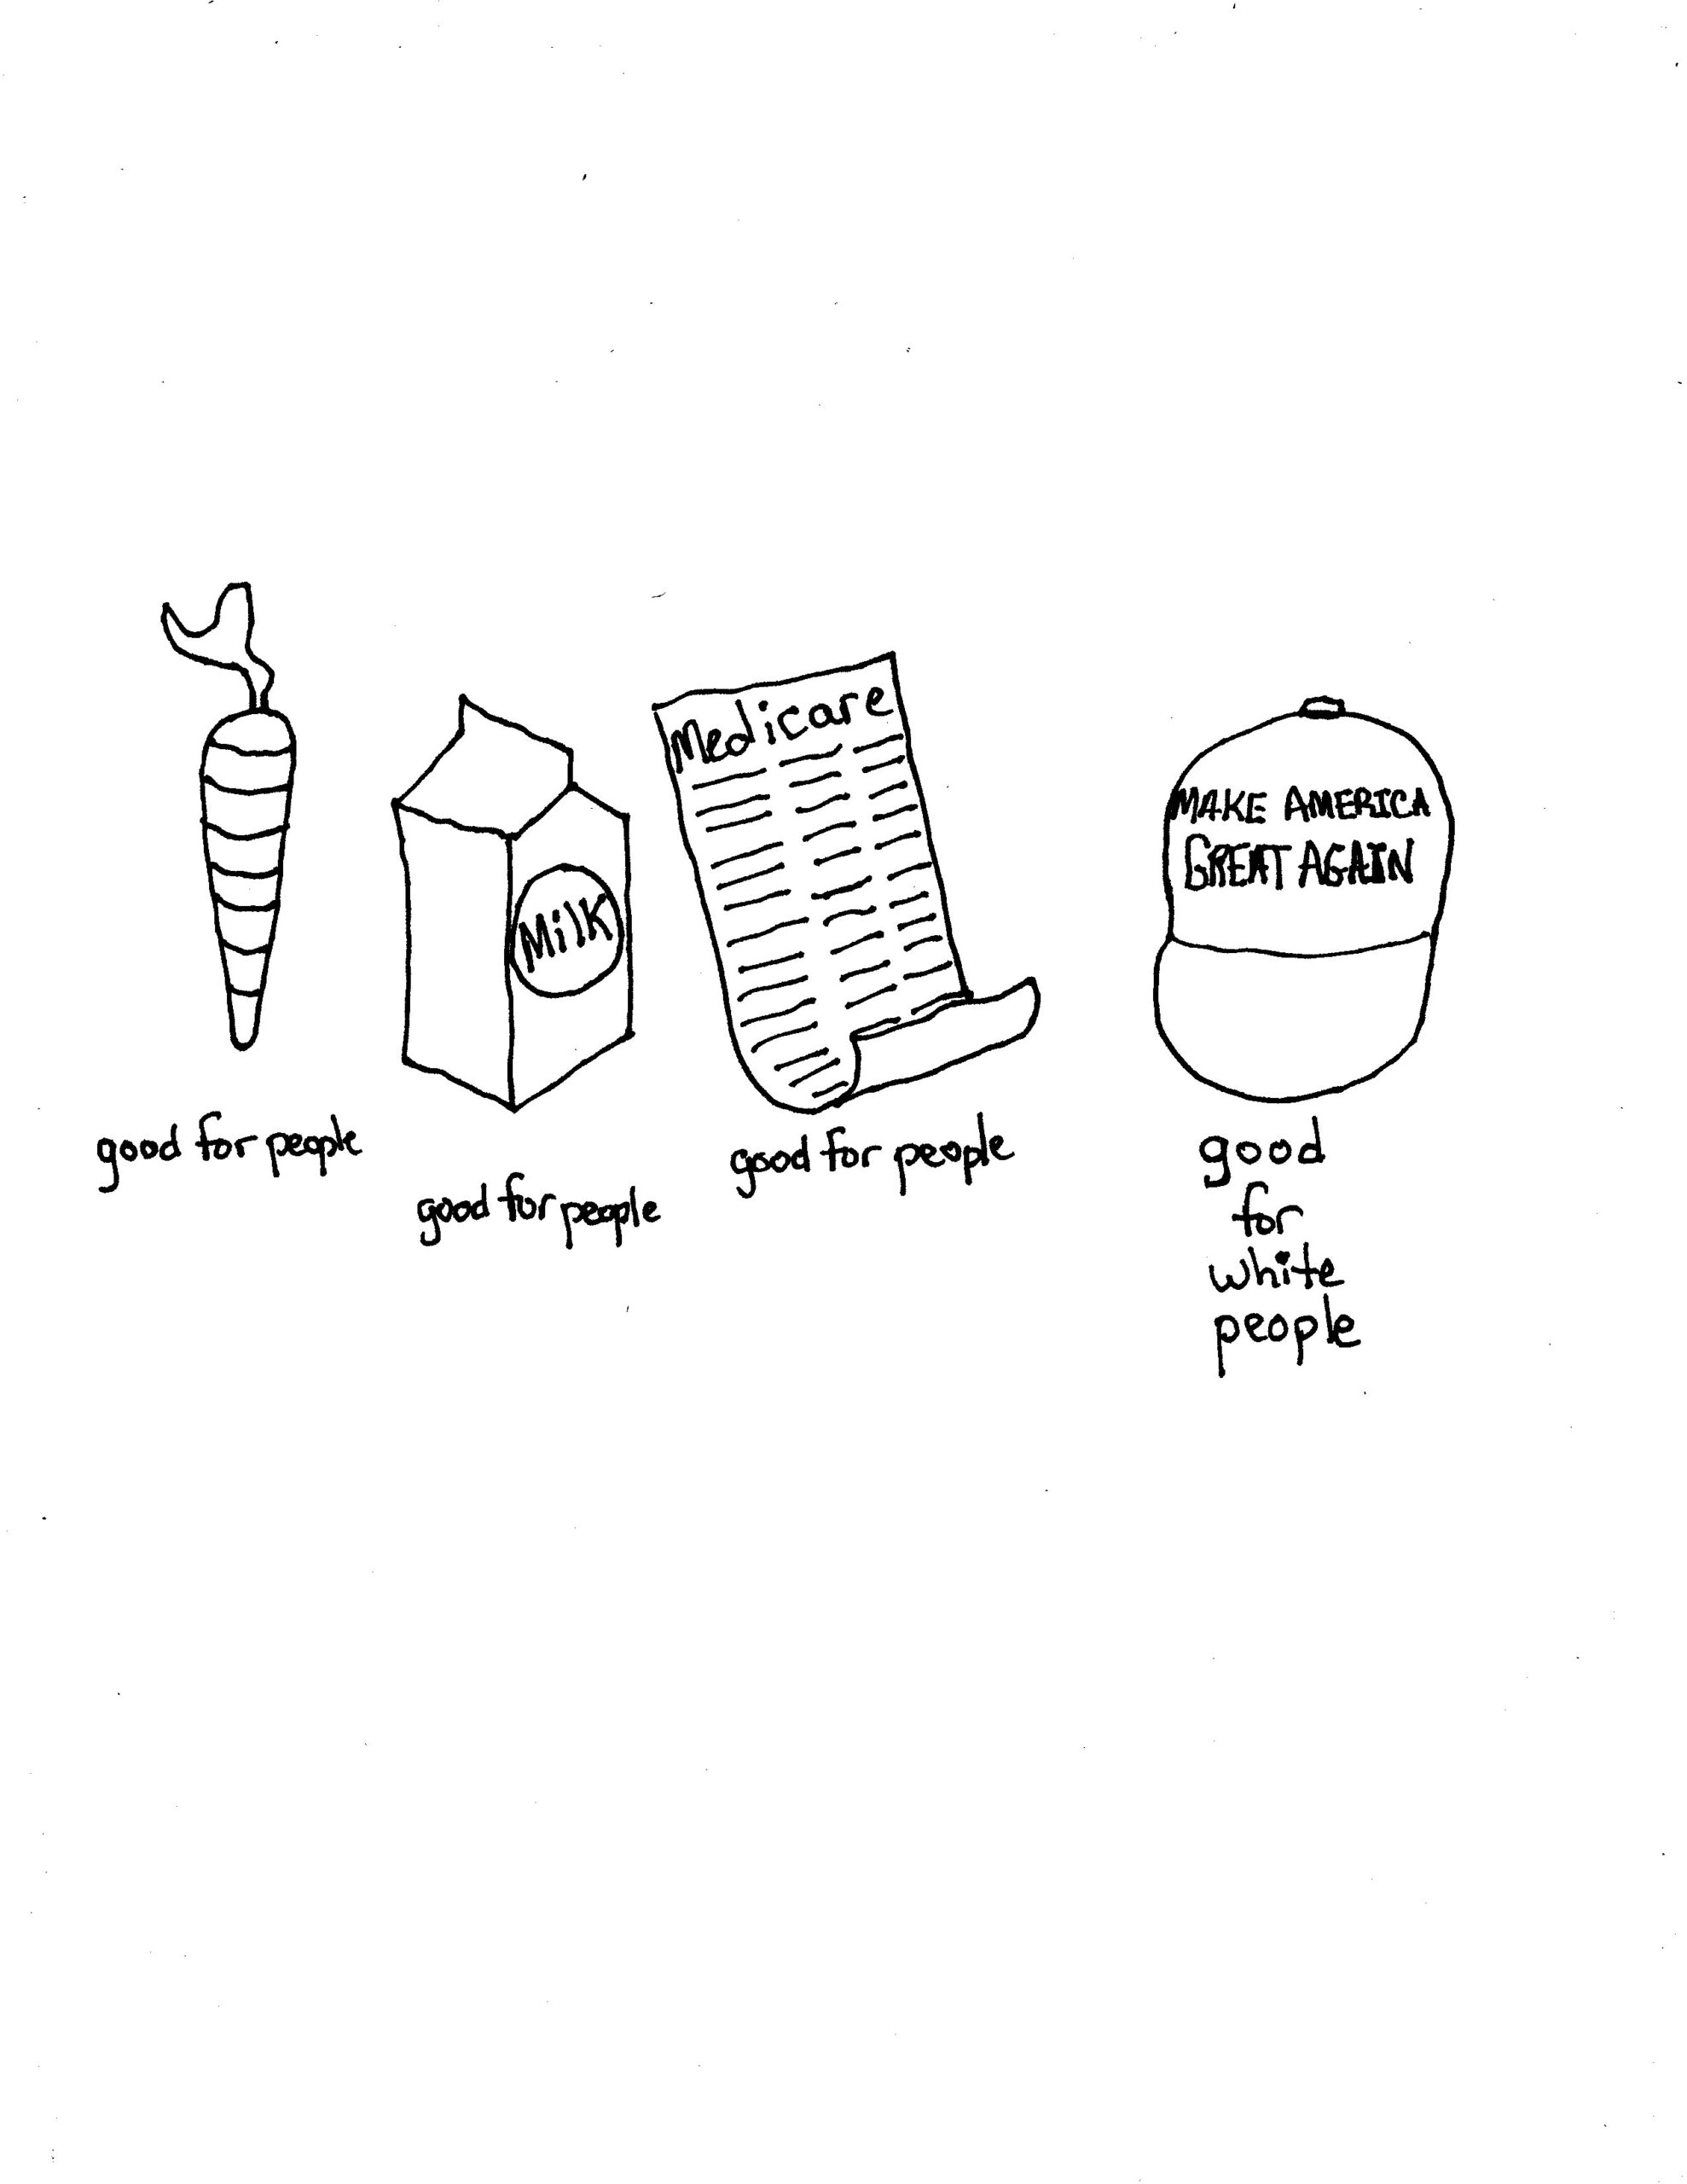 Milk
Medicare
MAKE AMERICA
GREAT AGAIN
good for people
good for people
good for people
good
for
white
people